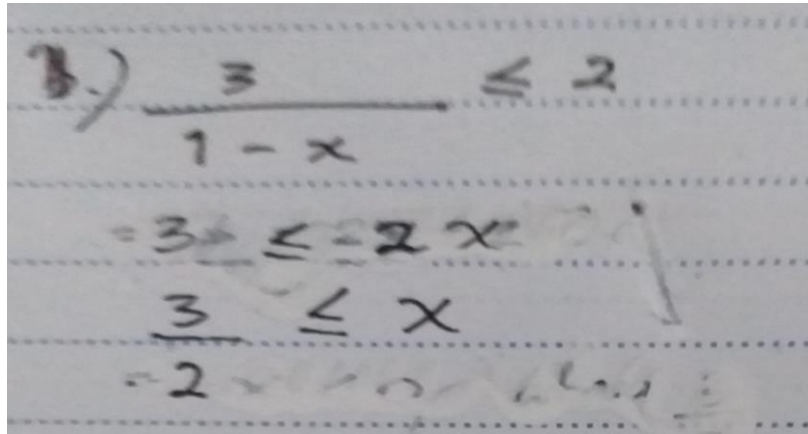 1.) 3 / (1 - x) ≤ 2
3 ≤ -2x
3 / -2 ≤ x